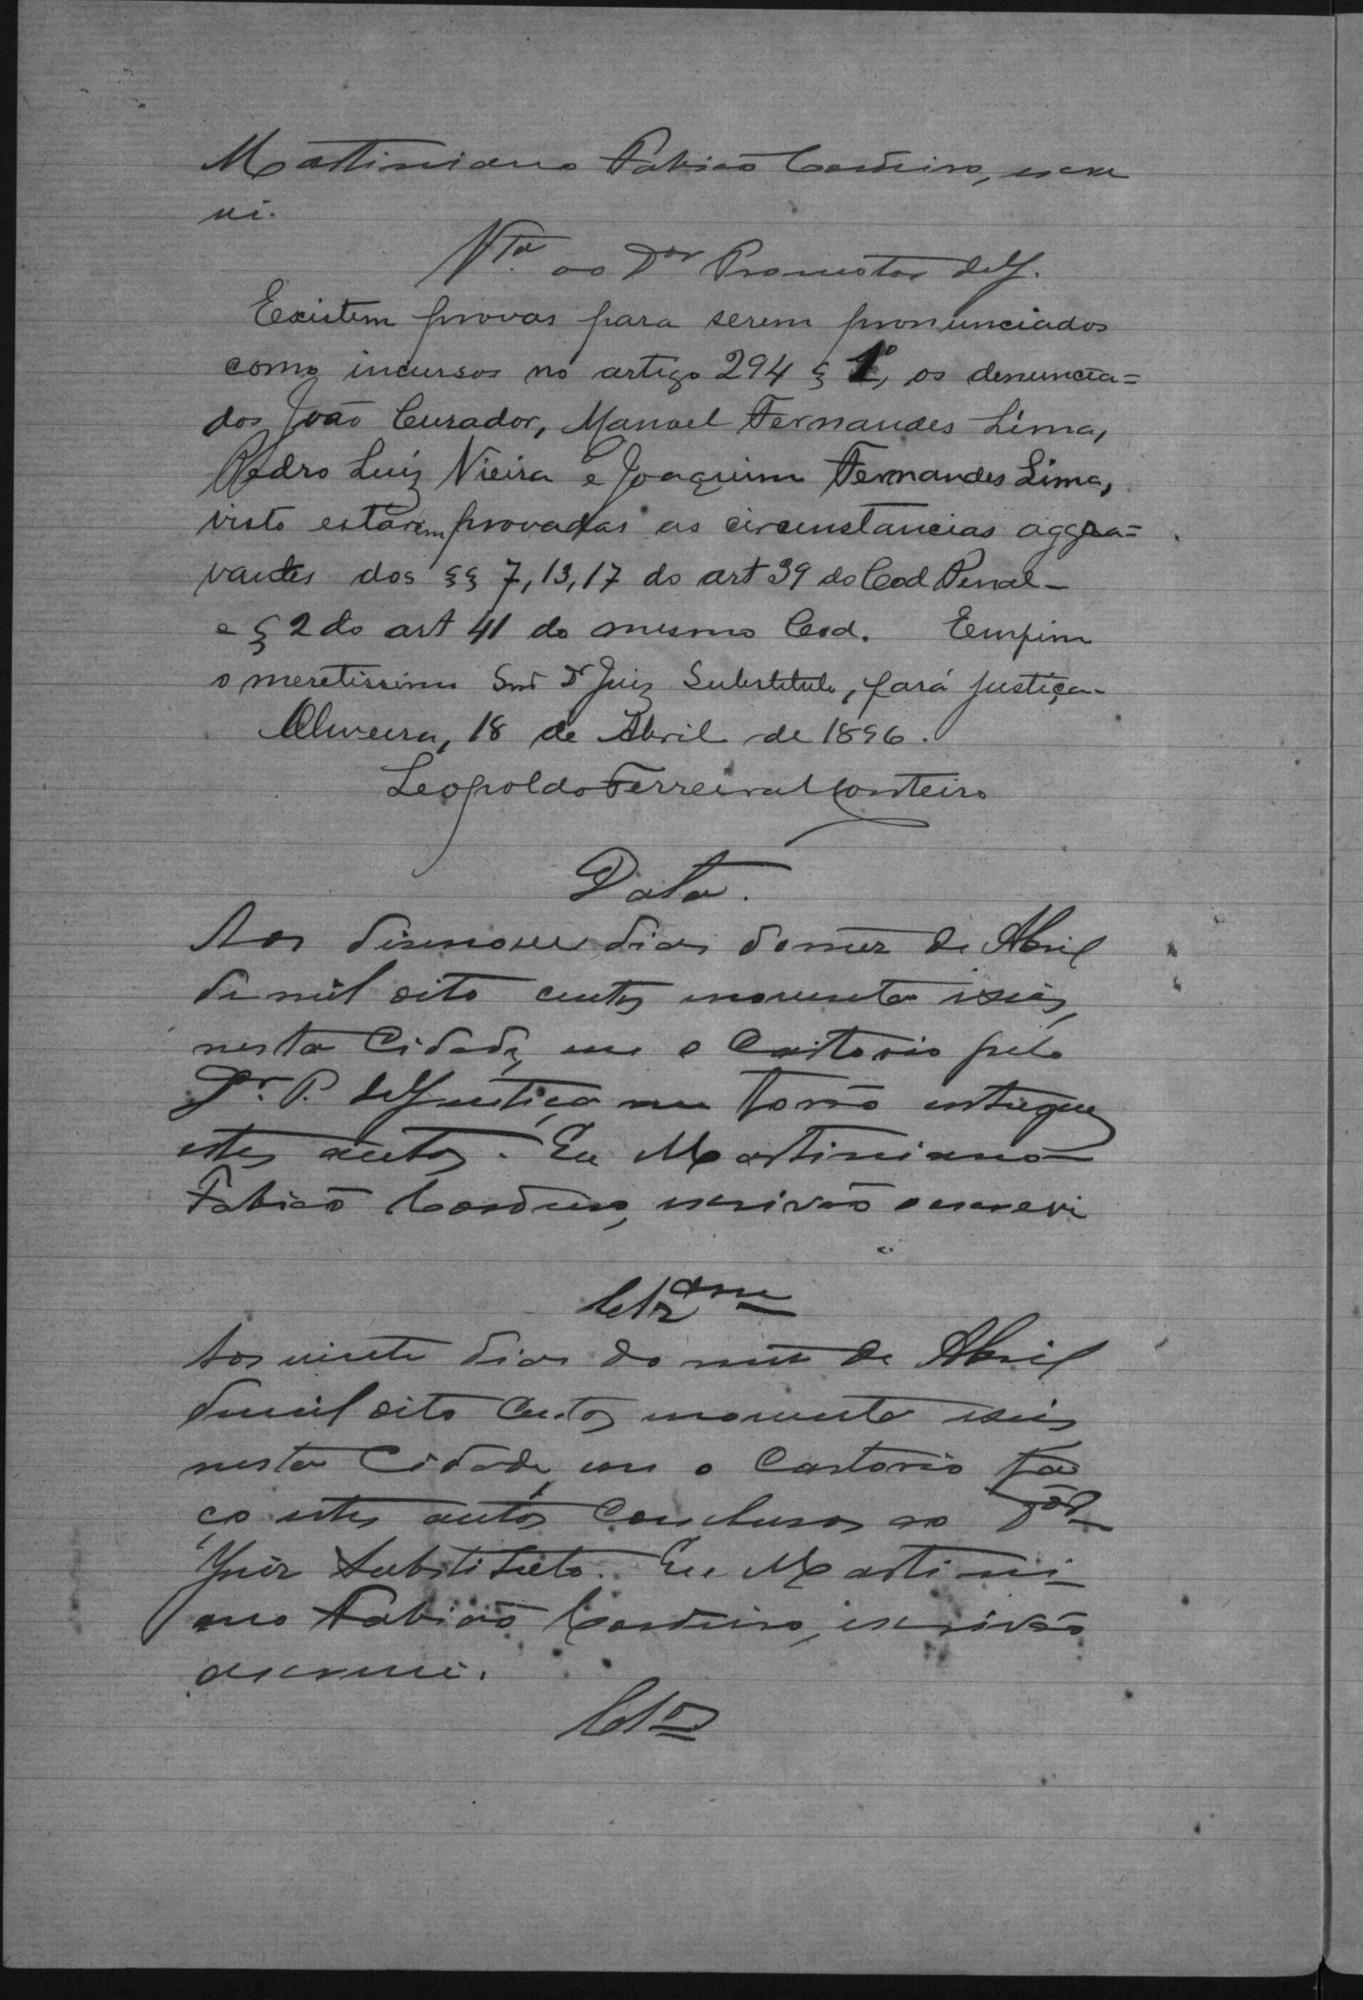 Martiniano Fabião Cordeiro, escre
vi.
Vta. ao Dor Promotor de J.
Existem provas para serem pronunciados
como incursos no artigo 294 § 1º, os denuncia=
dos João Curador, Manoel Fernandes Lima,
Pedro Luiz Vieira e Joaquim Fernandes Lima,
visto estarem provadas as circunstancias aggra=
vantes dos §§ 7, 13, 17 do art 39 do Cod Penal-
e § 2 do art 41 do mesmo Cod. Emfim
o meretissimo Snr Dr Juiz Substituto, fará justiça.
Oliveira, 18 de Abril de 1896.
Leopoldo Ferreira Monteiro
Data.
Aos disenove dias do mez de Abril
de mil oito centos enoventa iseis,
nesta Cidade, em o Cartorio pelo
Dr. P. de Justiça me forão entregues
estes autos. Eu Martiniano
Fabião Cordeiro, escrivão o escrevi
Clzam
Aos vinte dias do mez de Abril
de mil oito centos enoventa eseis
nesta Cidade, em o Cartorio fa
ço estes autos Conclusos ao Dor
Juiz Substituto. Eu Martini
ano Fabião Cordeiro, escrivão
oescrevi.
Clos